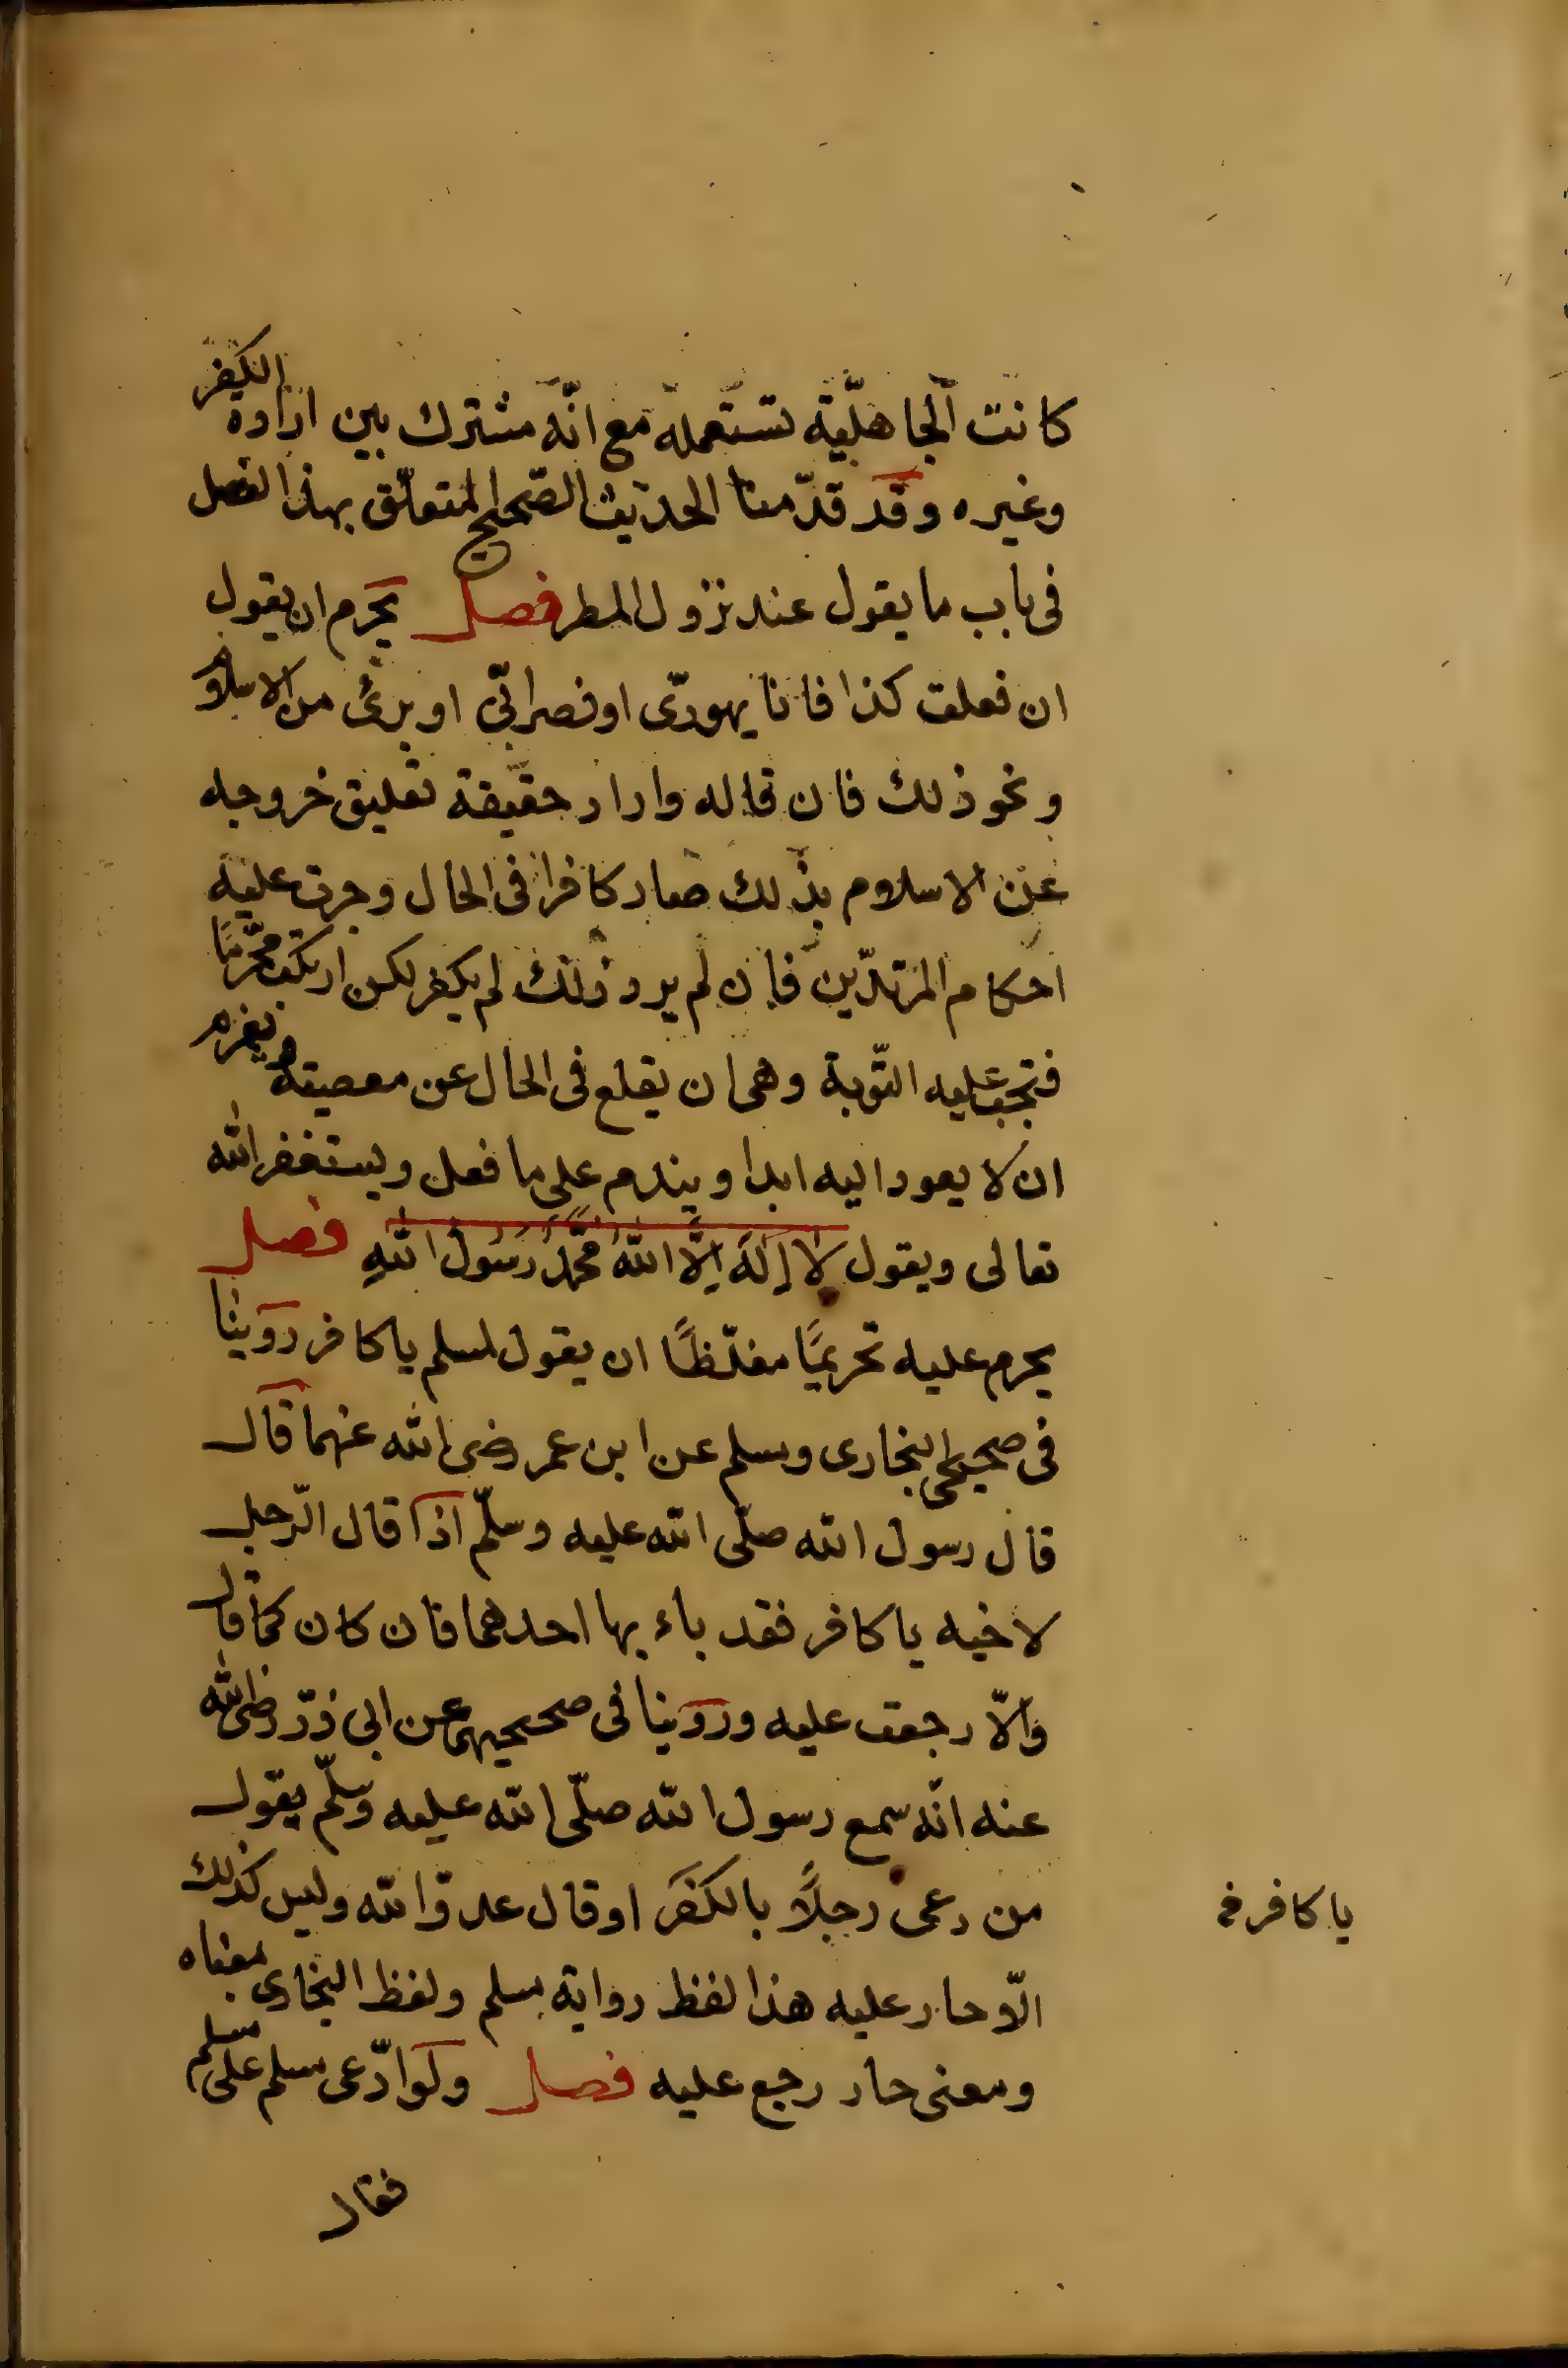 كانت الجاهليّة تستعمله مع انّه مشترك بين ارادة الكفر
وغيره وقد قدّمنا الحديث الصّحيح المتعلّق بهذا الفصل
فى باب ما يقول عند نزول المطر فصل يحرم ان يقول
ان فعلت كذا فانا يهودىّ او نصرانىّ او برئ من الاسلام
ونحو ذلك فان قاله واراد حقيقة تعليق خروجه
عن الاسلام بذلك صار كافرا فى الحال وجرت عليه
احكام المرتدّين فان لم يرد ذلك لم يكفر لكن ارتكب محرّما
فتجب عليه التّوبة وهى ان يقلع فى الحال عن معصيته ويعزم
ان لا يعود اليه ابدا ويندم على ما فعل ويستغفر الله
تعالى ويقول لا إله إلّا الله محمّد رسول الله فصل
يحرم عليه تحريمًا مغلّظًا ان يقول لمسلم يا كافر روينا
فى صحيحى البخارى ومسلم عن ابن عمر رضى الله عنهما قال
قال رسول الله صلّى الله عليه وسلّم اذا قال الرّجل
لاخيه يا كافر فقد باء بها احدهما فان كان كما قال
والّا رجعت عليه وروينا فى صحيحيهما عن ابى ذرّ رضى الله
عنه انّه سمع رسول الله صلّى الله عليه وسلّم يقول
من دعى رجلًا بالكفر او قال عدوّ الله وليس كذلك
الّا حار عليه هذا لفظ رواية مسلم ولفظ البخارى بمعناه
ومعنى حار رجع عليه فصل ولو ادّعى مسلم على مسلم
فقال
يا كافر